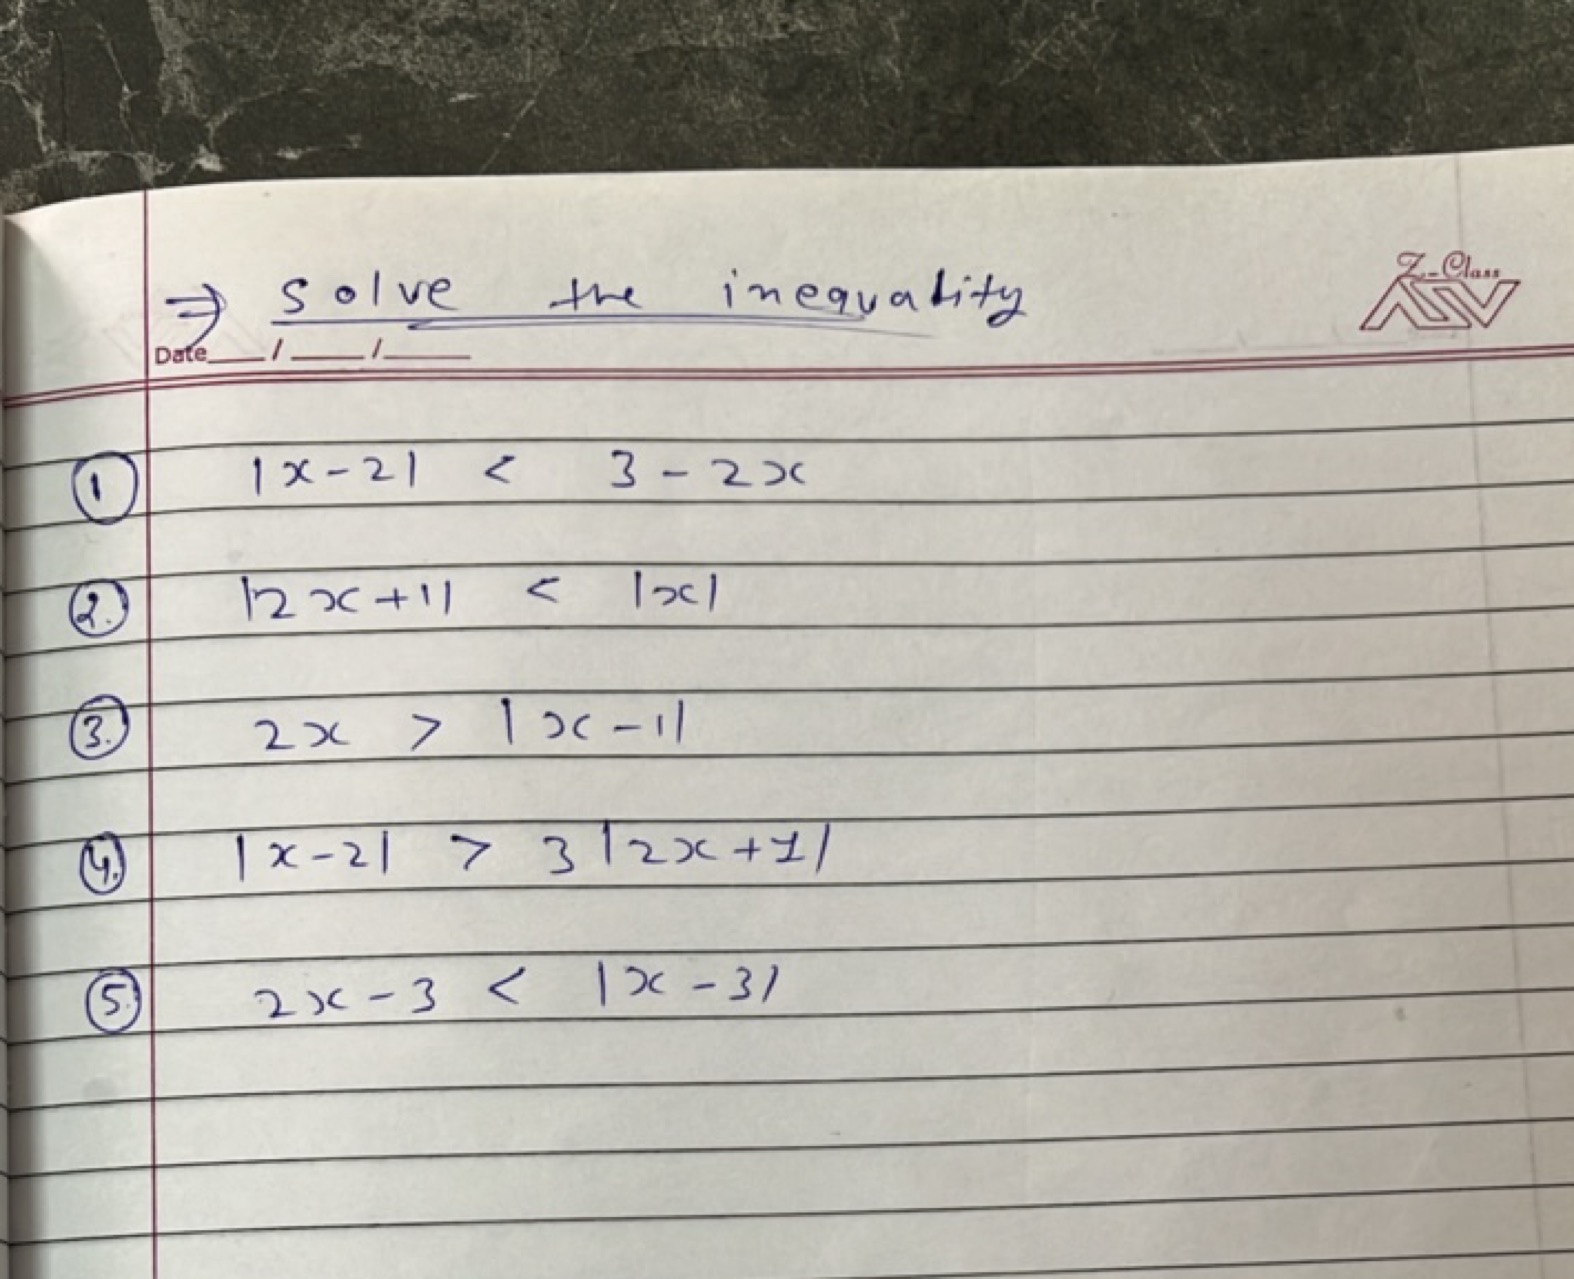 ⇒ solve the inequality
Z-Class
Date___/___/___
① |x-2| < 3-2x
②. |2x+1| < |x|
③. 2x > |x-1|
④. |x-2| > 3|2x+1|
⑤. 2x-3 < |x-3|